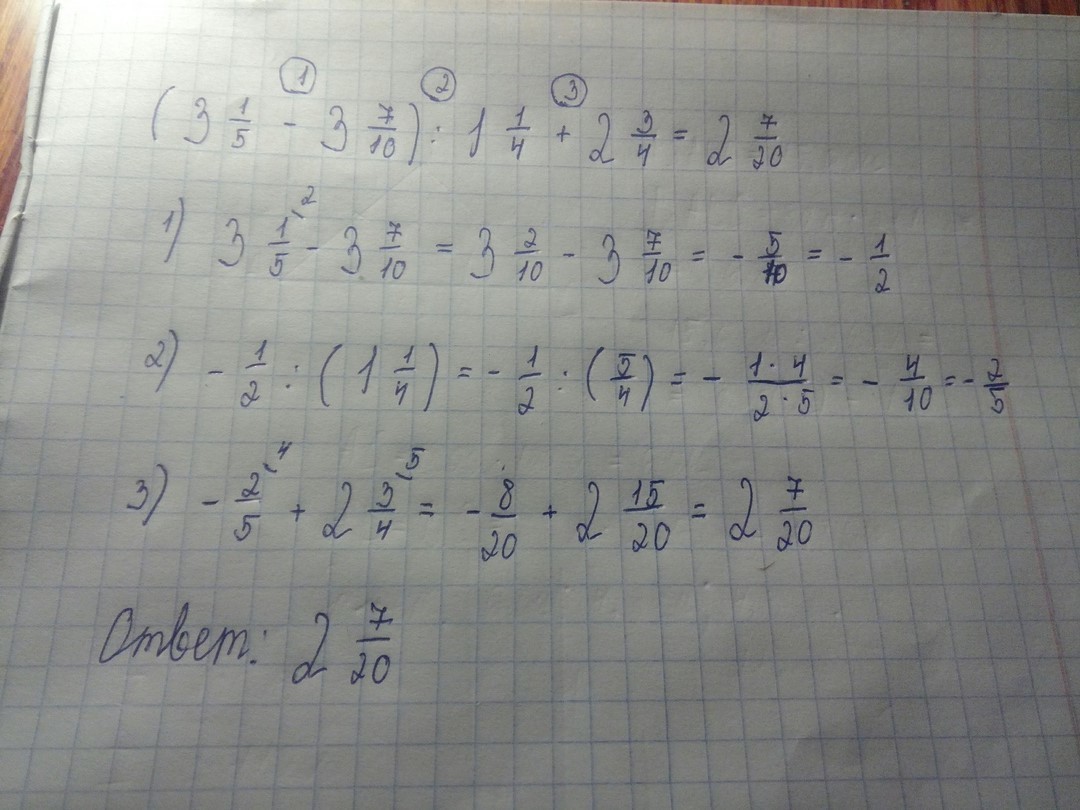 ① ② ③
(3 1/5 - 3 7/10) : 1 1/4 + 2 3/4 = 2 7/20
1) 3 1/5 ⁽² - 3 7/10 = 3 2/10 - 3 7/10 = - 5/10 = - 1/2
2) - 1/2 : (1 1/4) = - 1/2 : (5/4) = - 1·4/2·5 = - 4/10 = - 2/5
3) - 2/5 ⁽⁴ + 2 3/4 ⁽⁵ = - 8/20 + 2 15/20 = 2 7/20
Ответ: 2 7/20